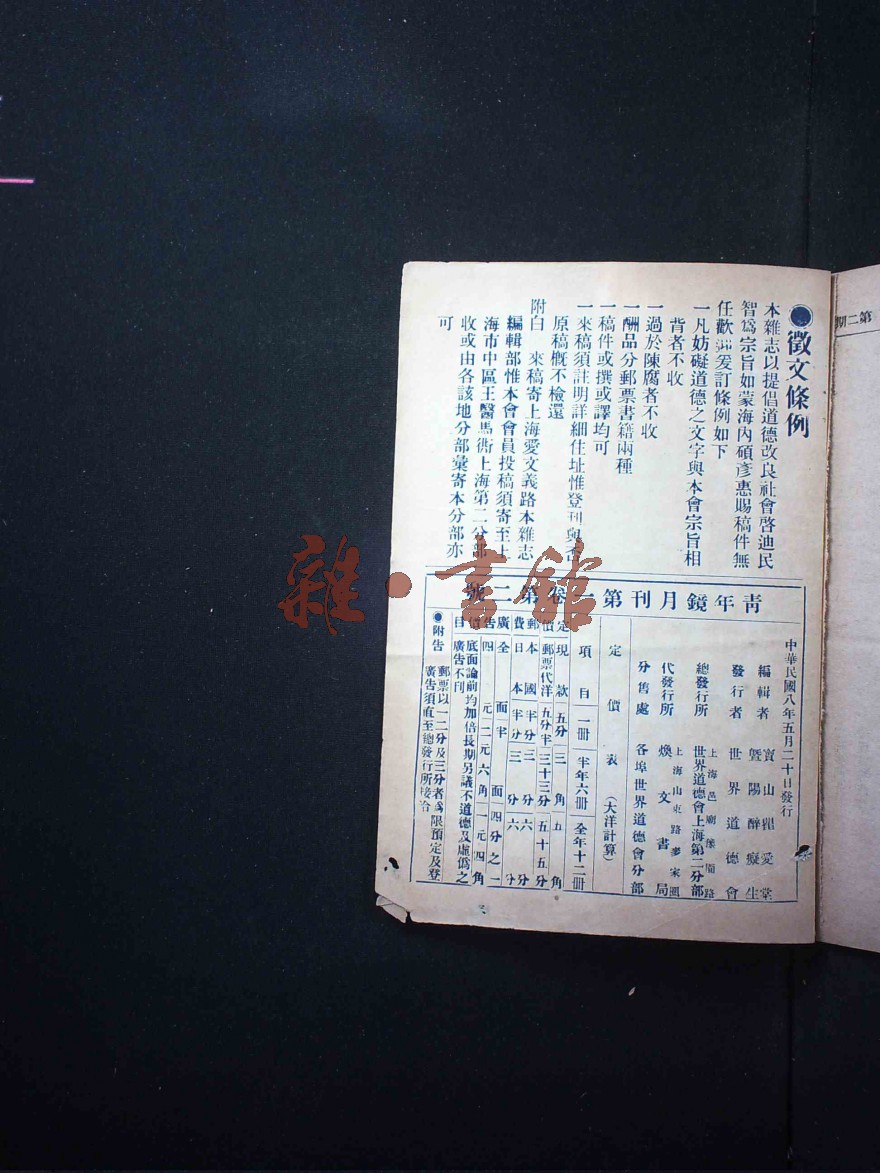 第二期
●徵文條例
本雜志以提倡道德改良社會啓迪民
智爲宗旨如蒙海內碩彥惠賜稿件無
任歡迎爰訂條例如下
一凡妨礙道德之文字與本會宗旨相
背者不收
一過於陳腐者不收
一酬品分郵票書籍兩種
一稿件或撰或譯均可
一來稿須註明詳細住址惟登刊與否
原稿概不檢還
附白 來稿寄上海愛文義路本雜志
編輯部惟本會會員投稿須寄至上
海市中區王醫馬衖上海第二分部
收或由各該地分部彙寄本分部亦
可
青年鏡月刊第一卷第二號
中華民國八年五月二十日發行
編輯者 寶山 愛堂
暨陽醉癡生
發行者 世界道德會
總發行所 上海邑廟 園路
世界道德會上海第二分部
代發行所 上海山東路麥家圈
煥文書局
分售處 各埠世界道德會分部
定價表(大洋計算)
項目 一冊 半年六冊 全年十二冊
定價 現款 五分 三角 五角
郵票代洋 五分半 三十三分 五十五分
郵費 本國 半分 三分 六分
日本 半分 三分 六分
廣告價目 全面 半面 四分之一
四元 二元六角 一元四角
底面論前均加倍長期另議不道德及虛僞之
廣告不刊
●附告 郵票以一二分及三分者爲限預定及登
廣告須直至總發行所接洽
雜·書館